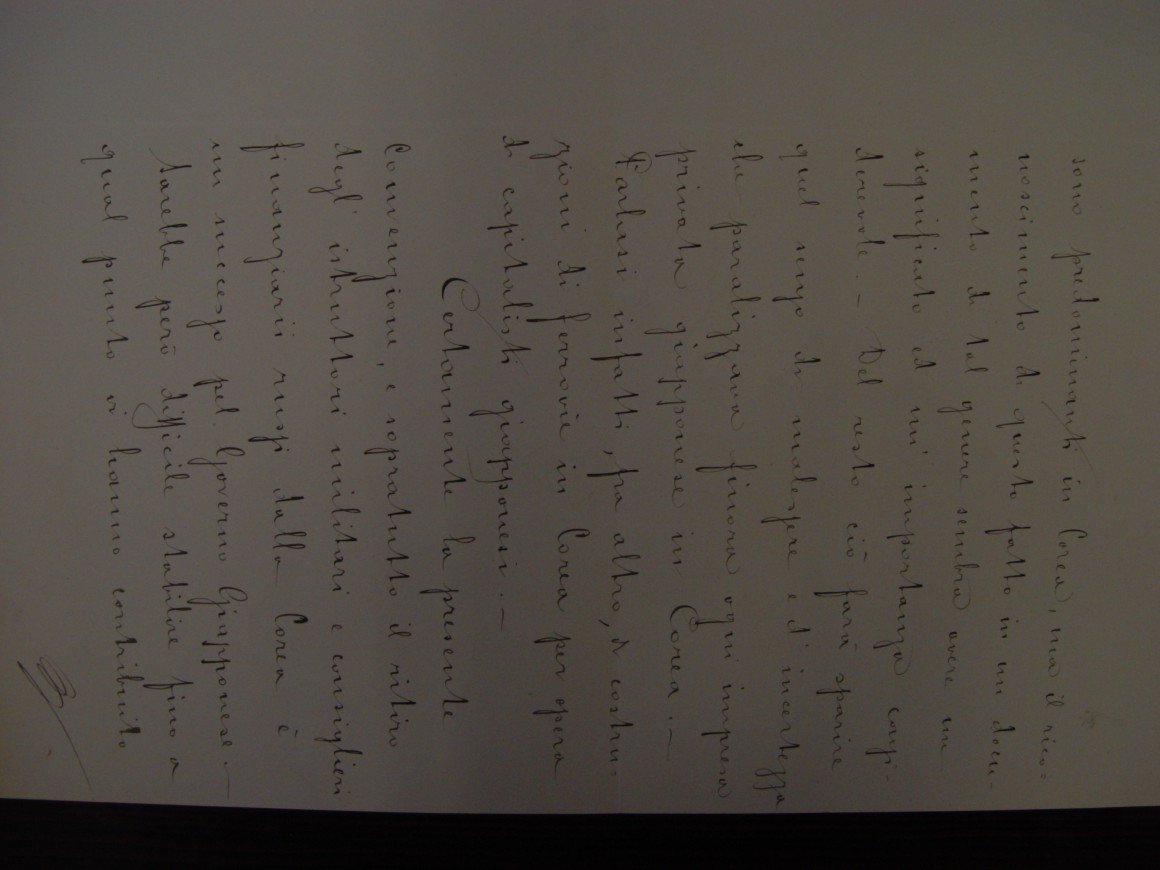 sono predominanti in Corea, ma il rico-
noscimento di questo fatto in un docu-
mento di tal genere sembra avere un
significato ed un' importanza consi-
derevole. - Del resto ciò farà sparire
quel senso di malessere e d'incertezza
che paralizzava finora ogni impresa
privata giapponese in Corea. -
Parlasi infatti, fra altro, di costru-
zioni di ferrovie in Corea per opera
di capitalisti giapponesi. -
Certamente la presente
Convenzione, e sopratutto il ritiro
degli istruttori militari e consiglieri
finanziarii russi dalla Corea è
un successo pel Governo Giapponese. -
Sarebbe però difficile stabilire fino a
qual punto vi hanno contribuito